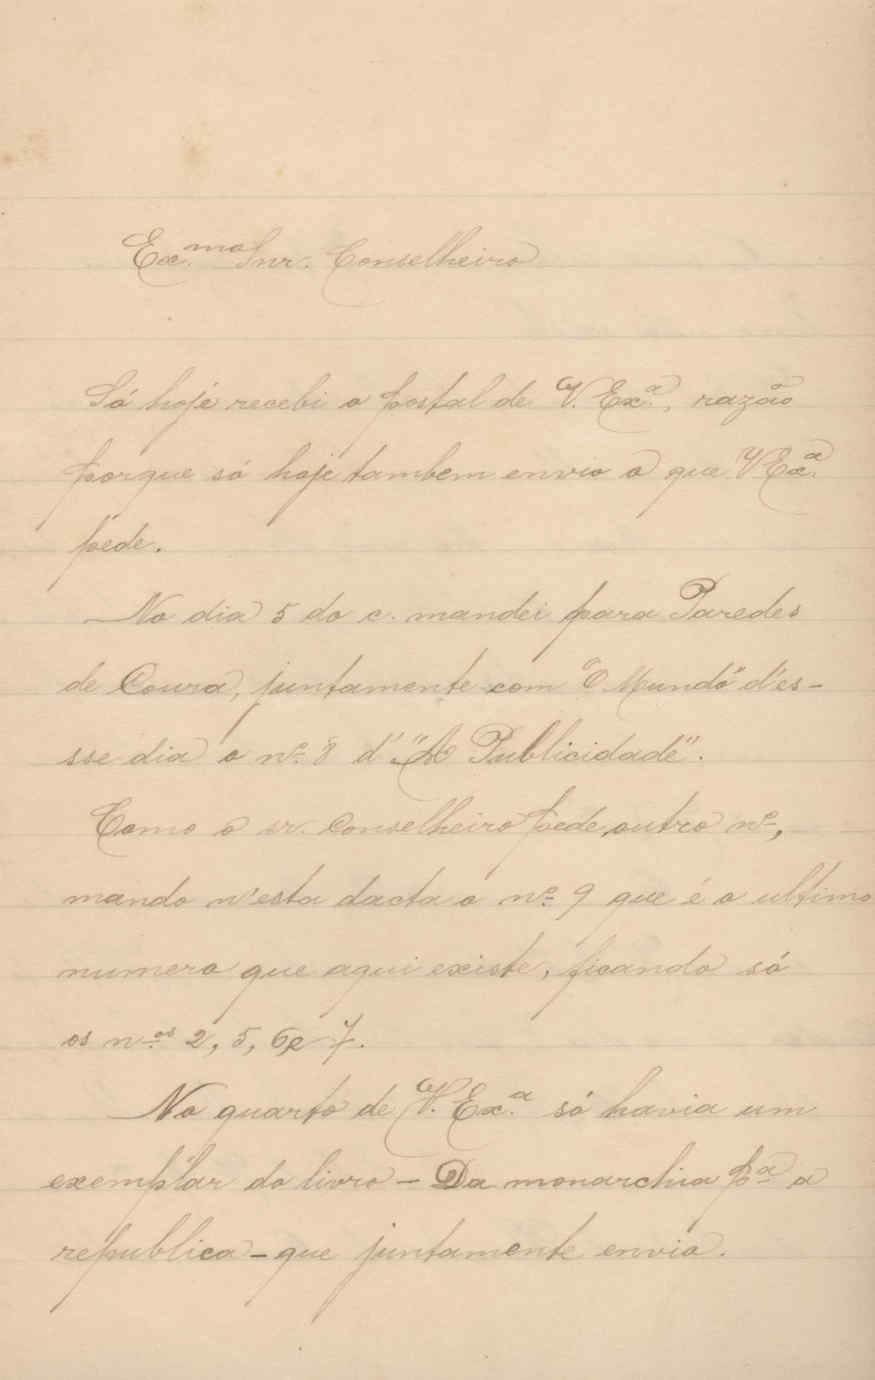 Ex.mo Snr. Conselheiro
Só hoje recebi o postal de V. Ex.ª, razão
porque só hoje tambem envio o que V Ex.ª
pede.
No dia 5 do c. mandei para Paredes
de Coura, juntamente com "O Mundo" d'es-
sse dia o nº 8 d' "A Publicidade".
Como o sr. Conselheiro pede outro nº,
mando n'esta dacta o nº 9 que é o ultimo
numero que aqui existe, ficando só
os n.os 2, 5, 6 e 7.
No quarto de V. Ex.ª só havia um
exemplar do livro - Da monarchia pª a
republica - que juntamente envio.